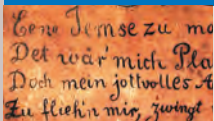 Eene Jemse zu
Det wär' mich
Doch mein jottvolles
Zu fliehn mir, zwingt